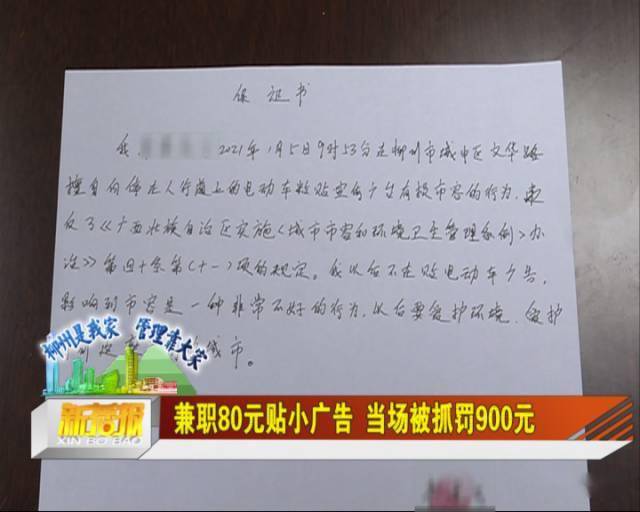 保证书
我 2021年1月5日9时53分在柳州市城中区文华路
擅自向停在人行道上的电动车粘贴宣传广告有损市容的行为,违
反了《广西壮族自治区实施〈城市市容和环境卫生管理条例〉办
法》第四十条第(十一)项的规定。我以后不在贴电动车广告,
影响到市容是一种非常不好的行为,以后要爱护环境,爱护
城市。
柳州是我家 管理靠大家
新播报
XIN BO BAO
兼职80元贴小广告 当场被抓罚900元